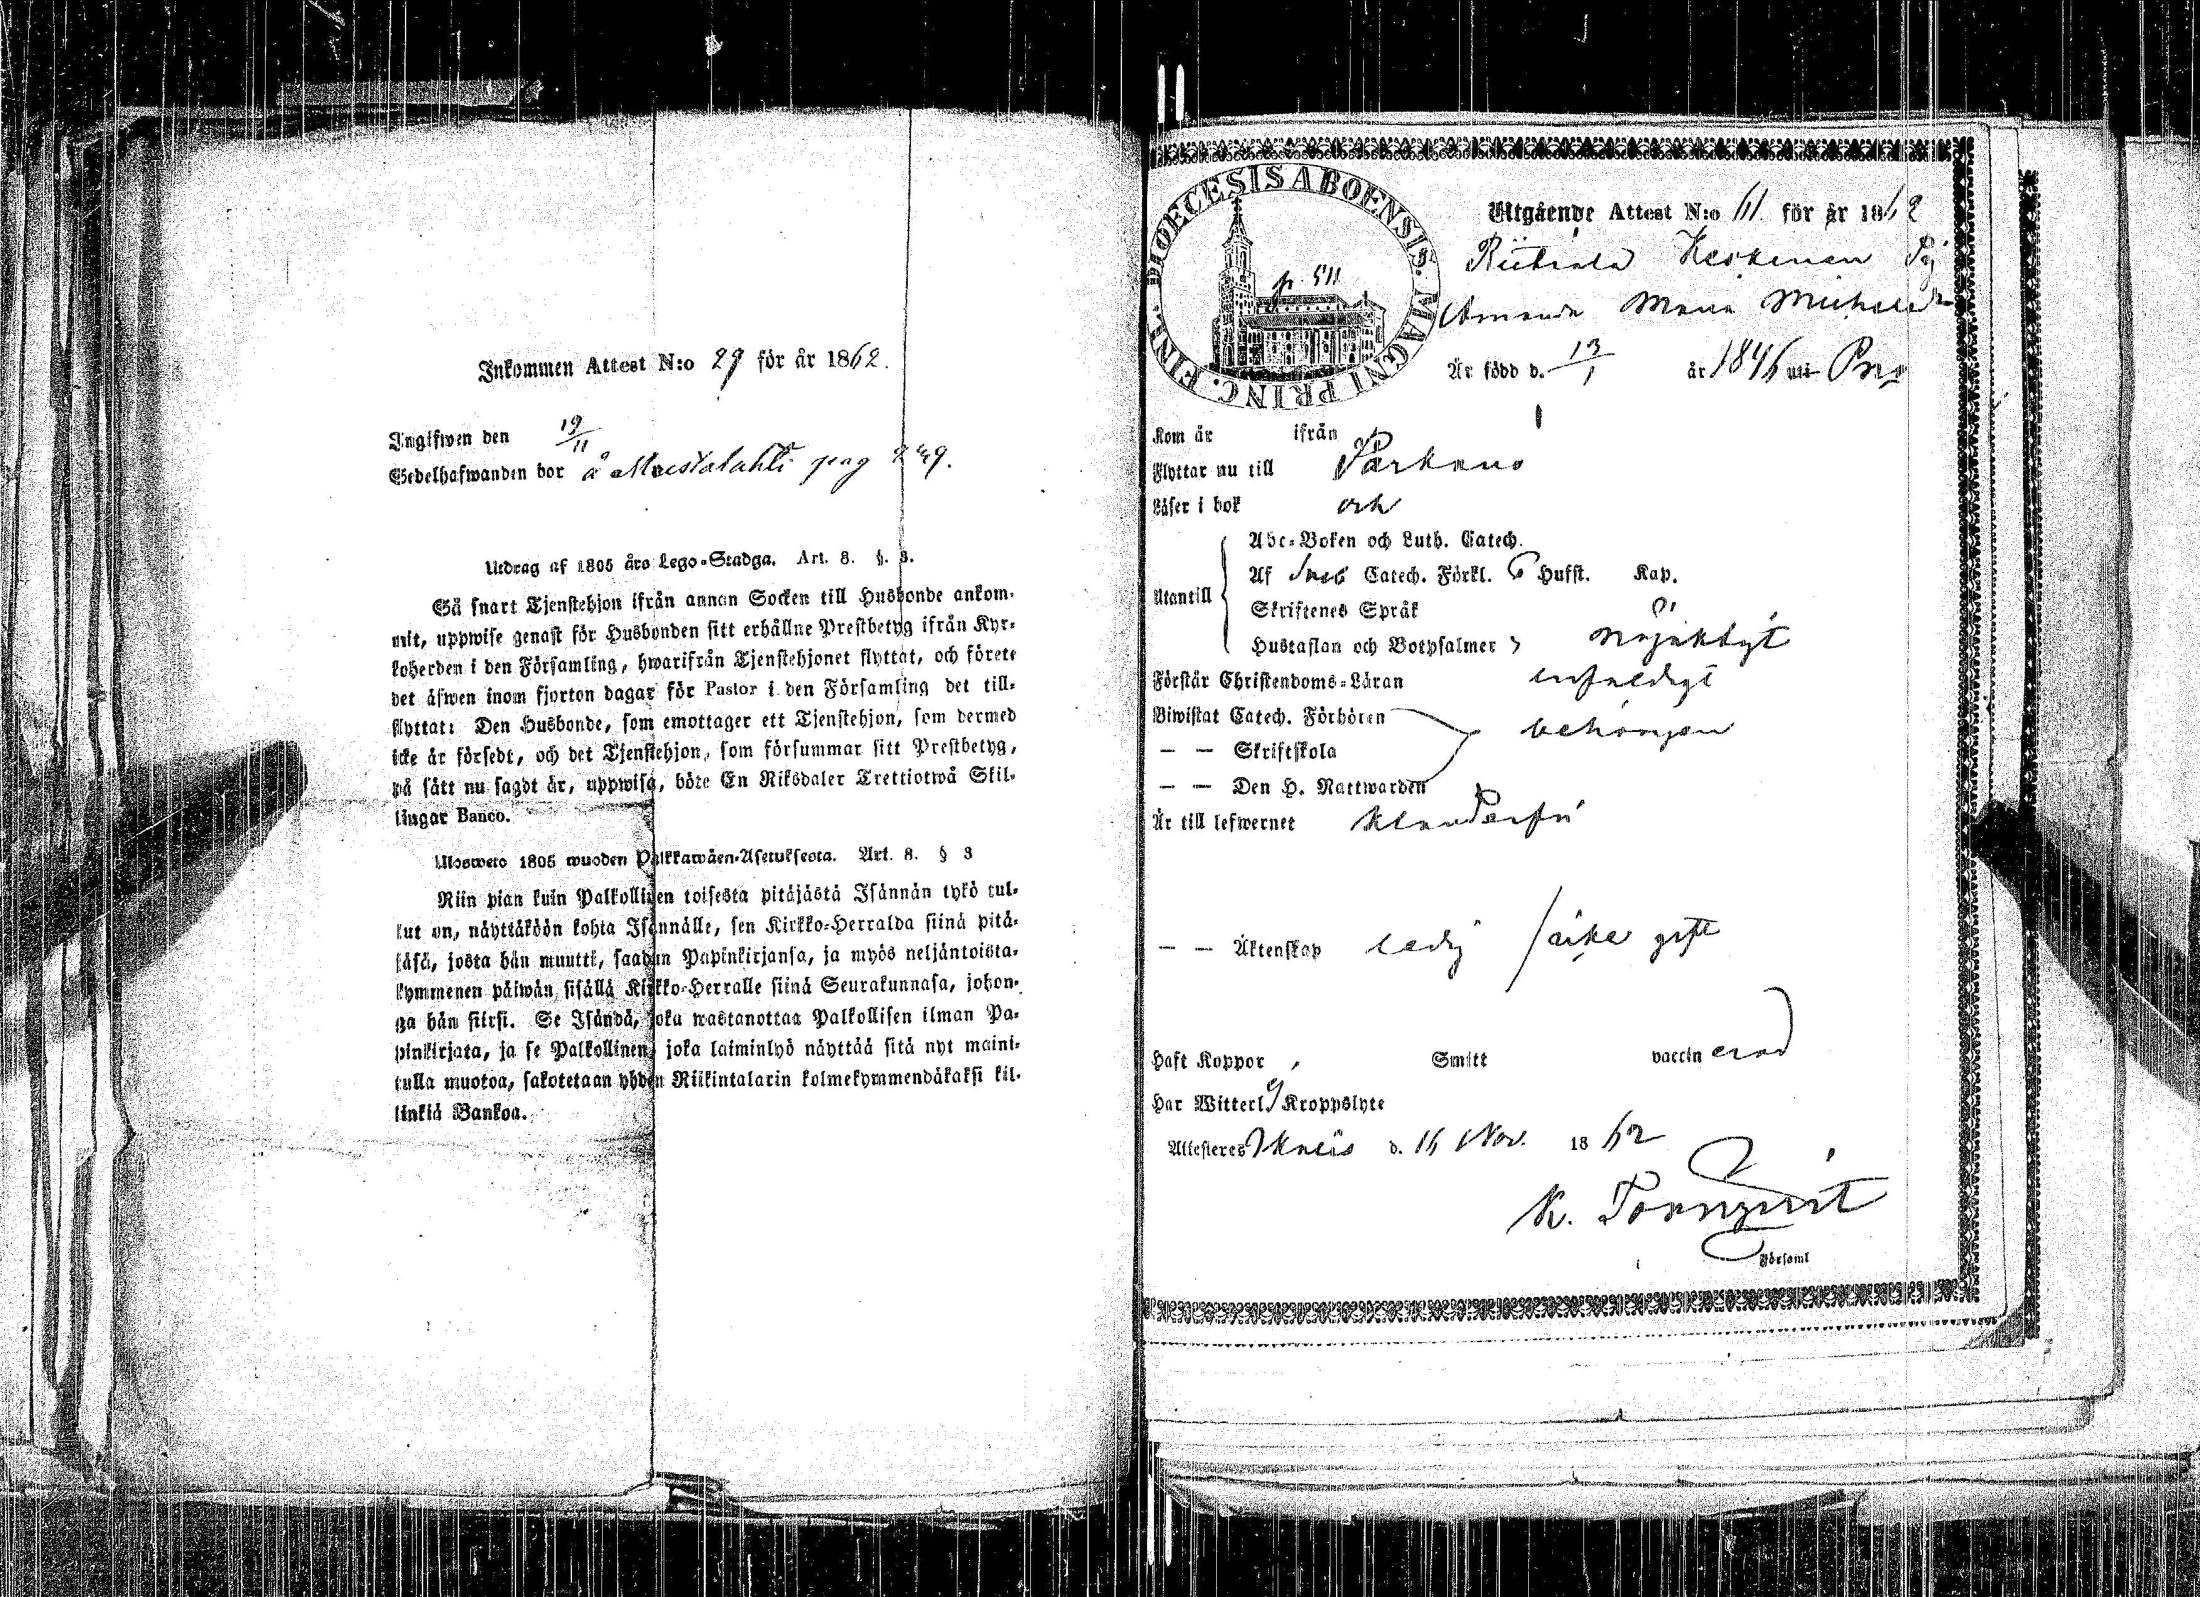 Inkommen Attest N:o 29 för år 1862.
Ingifwen den 19/11
Sedelhafwanden bor å pag 249.
Utdrag af 1805 års Lego-Stadga. Art. 8. §. 3.
Så snart Tjenstehjon ifrån annan Socken till Husbonde ankom-
mit, uppwise genast för Husbonden sitt erhållne Prestbetyg ifrån Kyr-
koherden i den Församling, hwarifrån Tjenstehjonet flyttat, och förete
det äfwen inom fjorton dagar för Pastor i den Församling det till-
flyttat: Den Husbonde, som emottager ett Tjenstehjon, som dermed
icke är försedt, och det Tjenstehjon, som försummar sitt Prestbetyg,
på sätt nu sagdt är, uppwisa, böte En Riksdaler Trettiotwå Skil-
lingar Banco.
Ulosweto 1805 wuoden Palkkawäen-Asetuksesta. Art. 8. § 3
Niin pian kuin Palkollinen toisesta pitäjästä Isännän tykö tul-
lut on, näyttäköön kohta Isännälle, sen Kirkko-Herralda siinä pitä-
jäsä, josta hän muutti, saadun Papinkirjansa, ja myös neljäntoista-
kymmenen päiwän sisällä Kirkko-Herralle siinä Seurakunnasa, johon-
ga hän siirsi. Se Isändä, joka wastanottaa Palkollisen ilman Pa-
pinkirjata, ja se Palkollinen, joka laiminlyö näyttää sitä nyt maini-
tulla muotoa, sakotetaan yhden Riikintalarin kolmekymmendäkaksi kil-
linkiä Bankoa.
FINL. DIOECESIS ABOENSIS. MAGNI PRINC.
p. 511
Utgående Attest N:o 61 för år 1862
Keskinen Pig
Amanda Maria Michelsdr
Är född d. 13/1 år 1846 uti
Kom år ifrån
Flyttar nu till Parkano
Läser i bok och
Utantill
Abc-Boken och Luth. Catech.
Af Sveb Catech. Förkl. 6 Hufst. Kap.
Skriftenes Språk
Hustaflan och Botpsalmer nöjaktigt
Förstår Christendoms-Läran enfaldigt
Biwistat Catech. Förhören behörigen
— — Skriftskola
— — Den H. Nattwarden
Är till lefwernet klanderfri
— — Äktenskap ledig
Haft Koppor Smitt vaccin erad
Har Witterl. Kroppslyte
Attesteres Ikalis d. 16 Nov. 1862
K. Tornqvist
i Församl